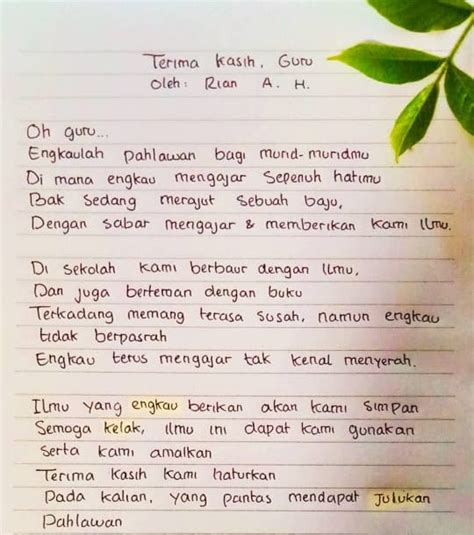 Terima kasih, Guru
Oleh: Rian A. H.
Oh guru...
Engkaulah pahlawan bagi murid-muridmu
Di mana engkau mengajar sepenuh hatimu
Bak sedang merajut sebuah baju,
Dengan sabar mengajar & memberikan kami Ilmu.
Di sekolah kami berbaur dengan Ilmu,
Dan juga berteman dengan buku
Terkadang memang terasa susah, namun engkau
tidak berpasrah
Engkau terus mengajar tak kenal menyerah.
Ilmu yang engkau berikan akan kami simpan
Semoga kelak, ilmu ini dapat kami gunakan
serta kami amalkan
Terima kasih kami haturkan
Pada kalian, yang pantas mendapat julukan
Pahlawan